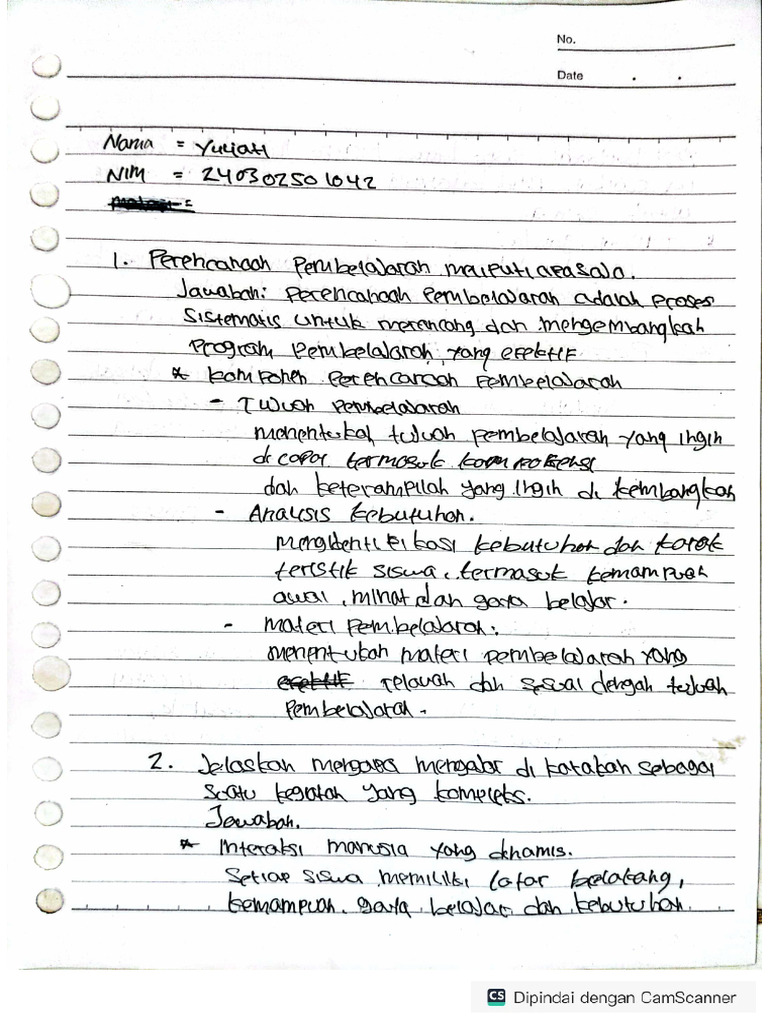 No.
Date
Nama = Yuliati
NIM = 240302501042
1. Perencanaan Pembelajaran meliputi apa saja.
Jawaban: Perencanaan Pembelajaran adalah proses
Sistematis untuk merencang dan mengembangkan
Program Pembelajaran yang efektif
* Komponen Perencanaan Pembelajaran
- Tujuan Pembelajaran
menentukan tujuan pembelajaran yang ingin
di capai termasuk kompotensi
dan keterampilan yang ingin di kembangkan
- Analisis kebutuhan.
mengidentifikasi kebutuhan dan karak
teristik siswa, termasuk kemampuan
awal, minat dan gaya belajar.
- materi Pembelajaran:
menentukan materi pembelajaran yang
relavan dan sesuai dengan tujuan
Pembelajaran.
2. Jelaskan mengapa mengajar di katakan sebagai
suatu kegiatan yang kompleks.
Jawaban.
* Interaksi manusia yang dinamis.
Setiap siswa memiliki latar belakang,
kemampuan, gaya belajar dan kebutuhan.
CS Dipindai dengan CamScanner